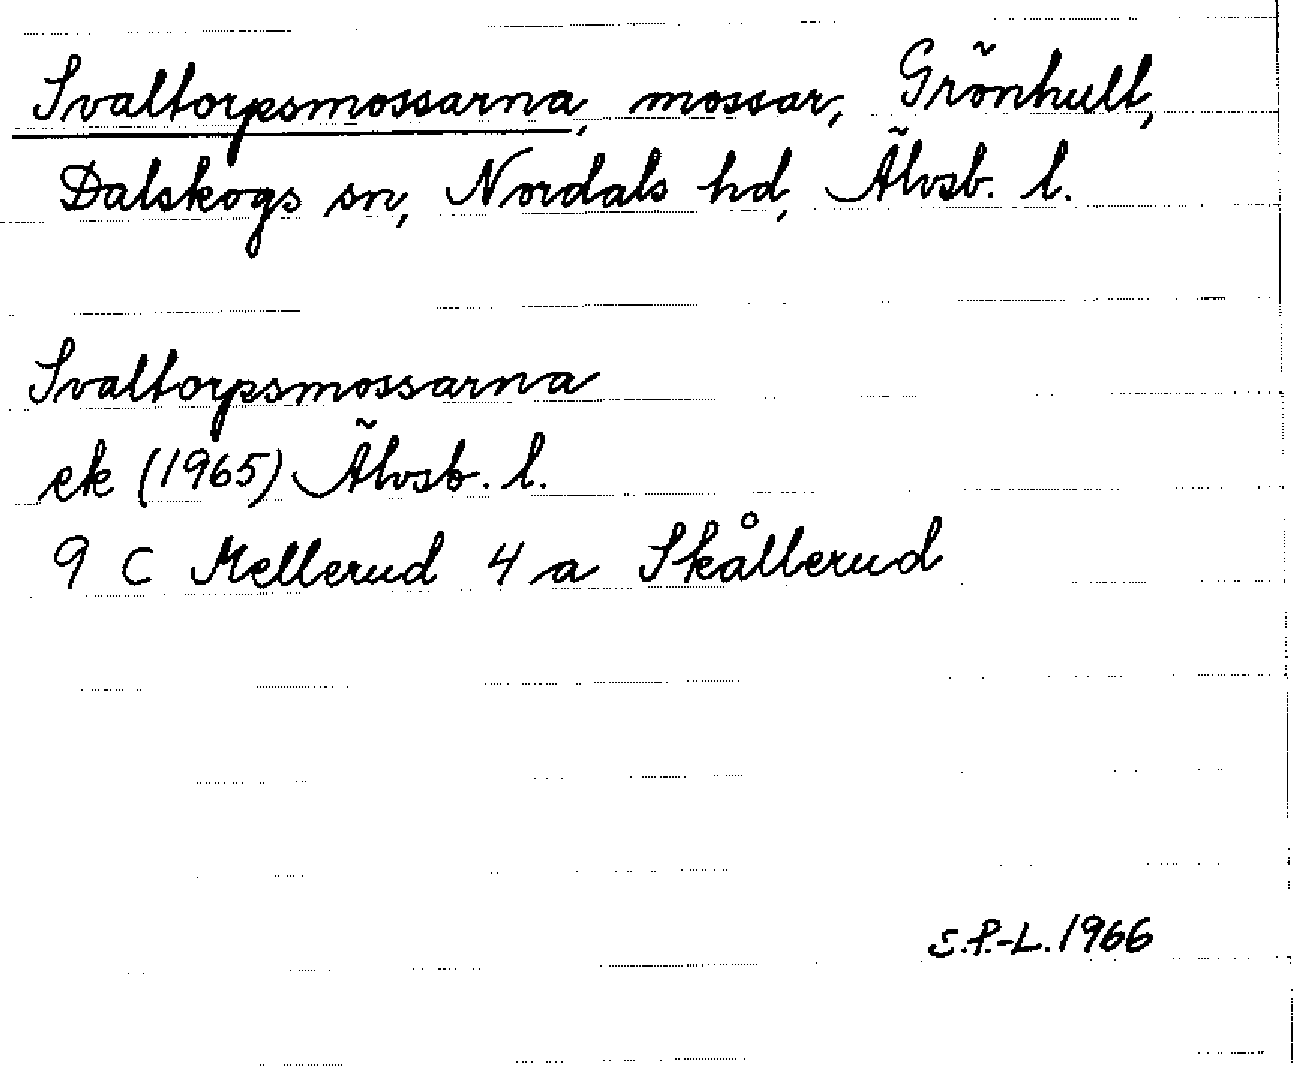 Svaltorpsmossarna, mossar, Grönhult,
Dalskogs sn, Nordals hd, Älvsb. l.
Svaltorpsmossarna
ek (1965) Älvsb. l.
9 C Mellerud 4 a Skållerud
S.P.-L. 1966